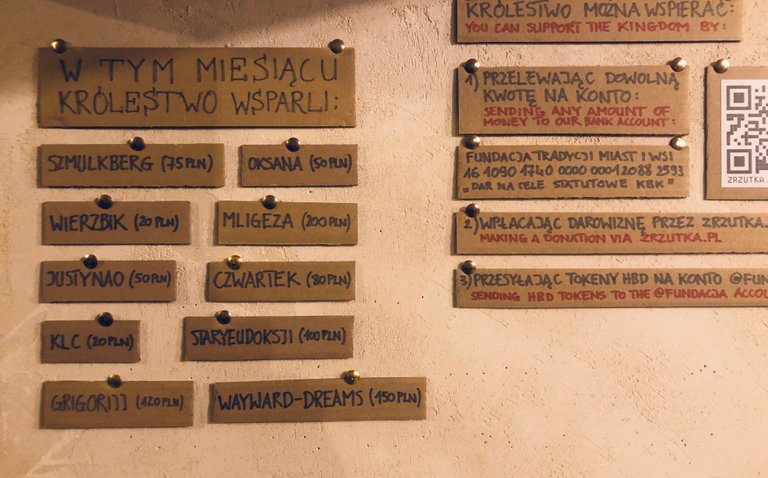 W TYM MIESIĄCU
KRÓLESTWO WSPARLI:
SZMULKBERG (75 PLN)
OKSANA (50 PLN)
WIERZBIK (20 PLN)
MLIGEZA (200 PLN)
JUSTYNAO (50 PLN)
CZWARTEK (80 PLN)
KLC (20 PLN)
STARYEUDOKSJI (100 PLN)
GRIGORIJJ (120 PLN)
WAYWARD-DREAMS (150 PLN)
KRÓLESTWO MOŻNA WSPIERAĆ:
YOU CAN SUPPORT THE KINGDOM BY:
1) PRZELEWAJĄC DOWOLNĄ
KWOTĘ NA KONTO:
SENDING ANY AMOUNT OF
MONEY TO OUR BANK ACCOUNT:
FUNDACJA TRADYCJI MIAST I WSI
16 1090 1740 0000 0001 2088 2593
„DAR NA CELE STATUTOWE KBK"
2) WPŁACAJĄC DAROWIZNĘ PRZEZ ZRZUTKA.
MAKING A DONATION VIA ZRZUTKA.PL
3) PRZESYŁAJĄC TOKENY HBD NA KONTO @FUN
SENDING HBD TOKENS TO THE @FUNDACJA ACCOU
ZRZUTKA.